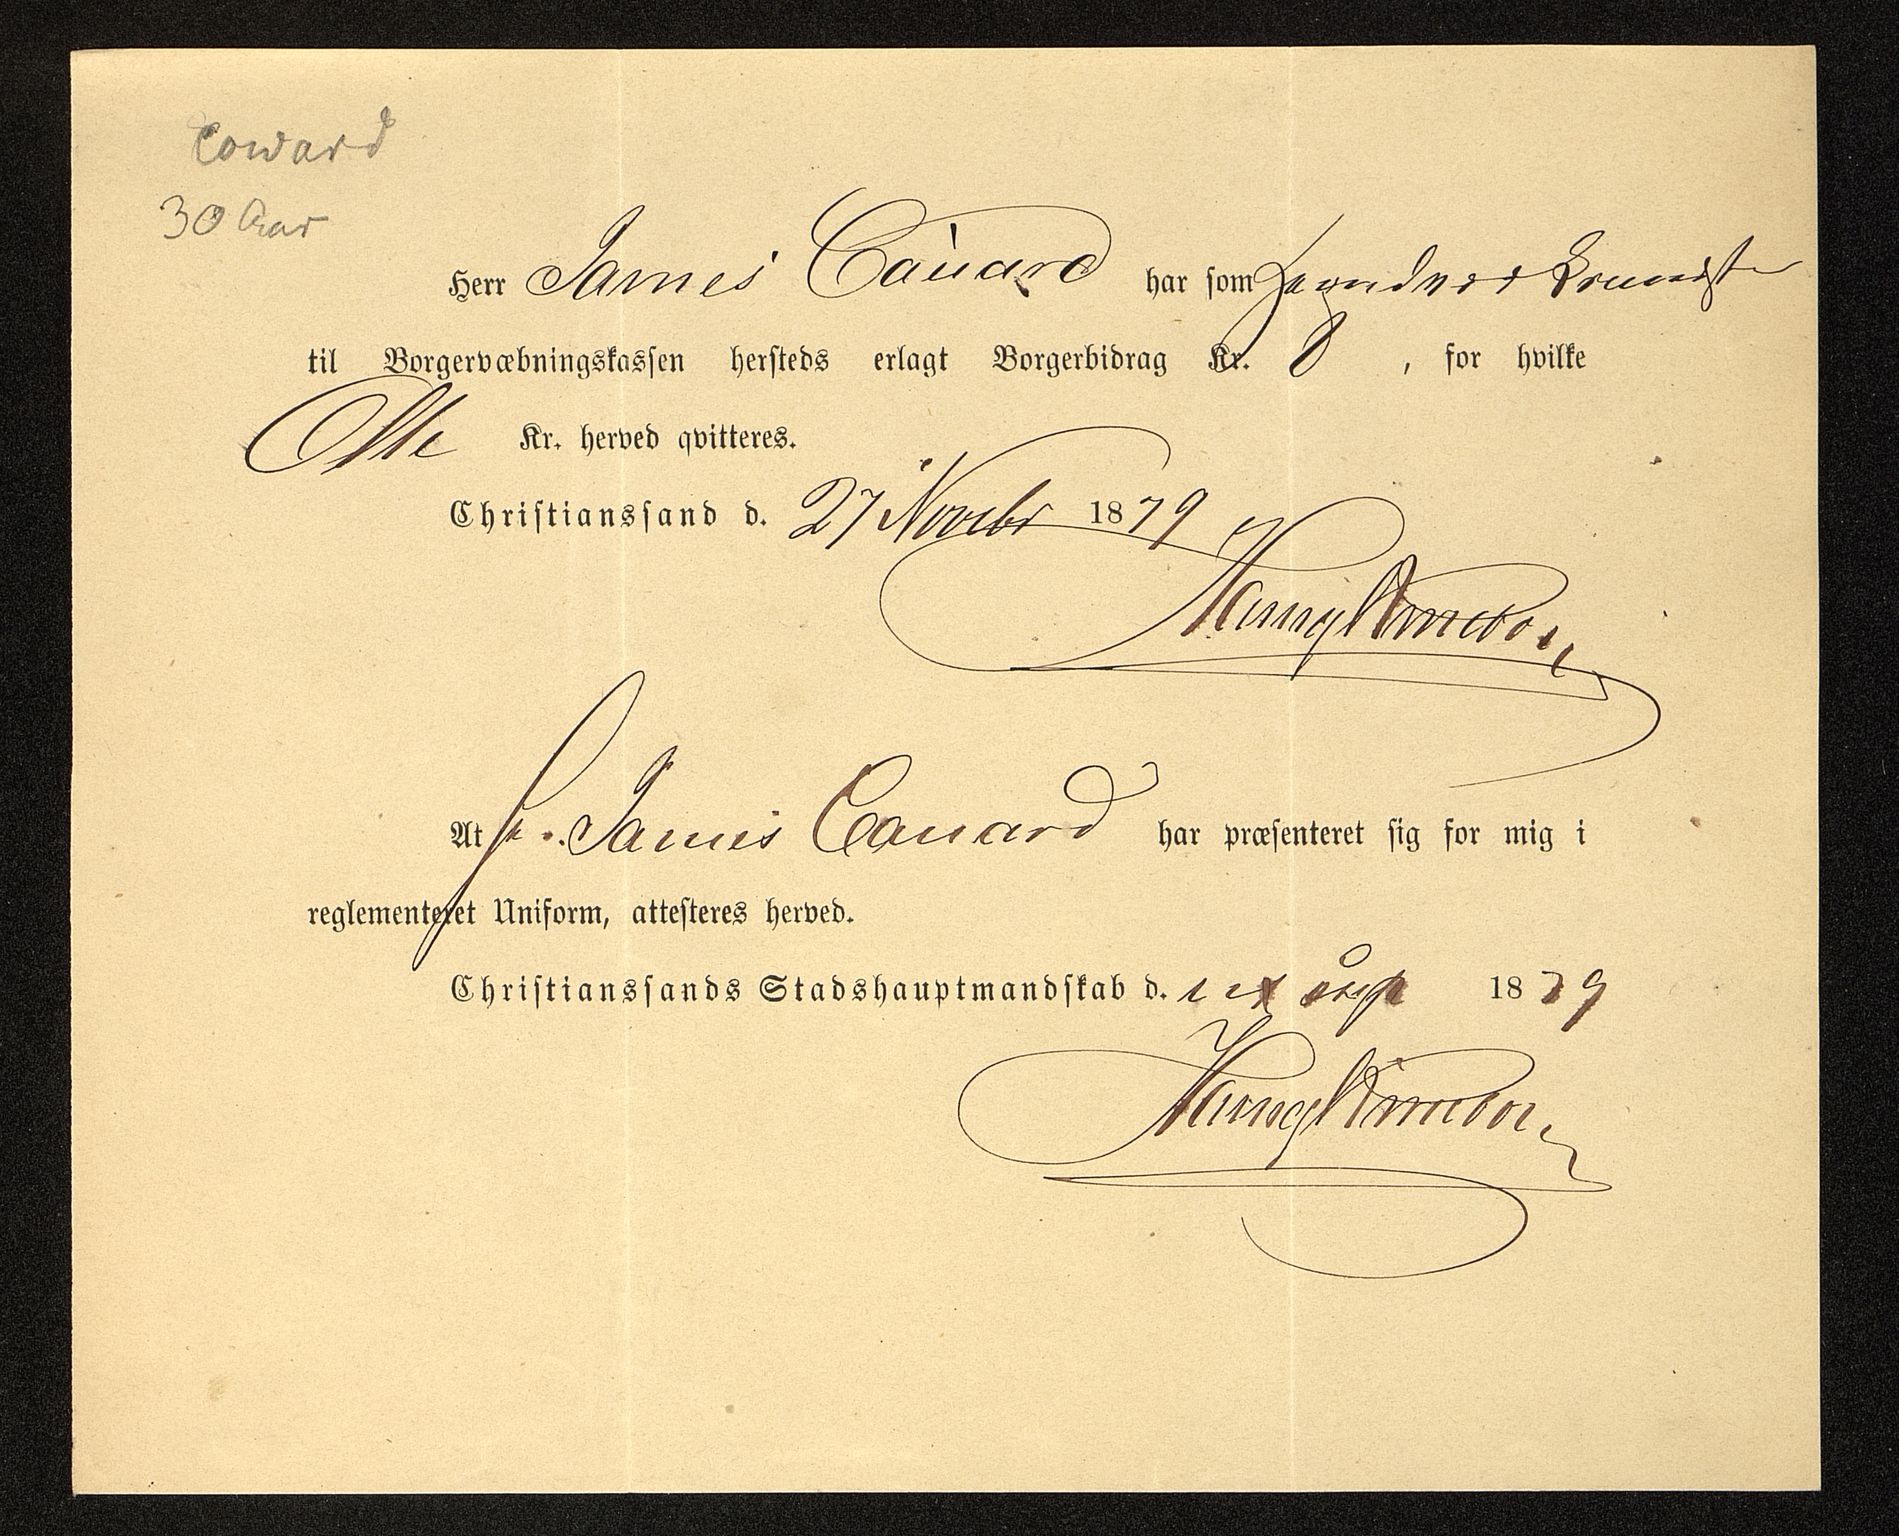 Coward
30 Aar
Herr James Cauard har som Haandverksmester
til Borgervæbningskassen hersteds erlagt Borgerbidrag Kr. 8 , for hvilke
Otte Kr. herved qvitteres.
Christianssand d. 27 Novebr 1879
At Hr. James Couard har præsenteret sig for mig i
reglementeret Uniform, attesteres herved.
Christianssands Stadshauptmandskab d. 1879